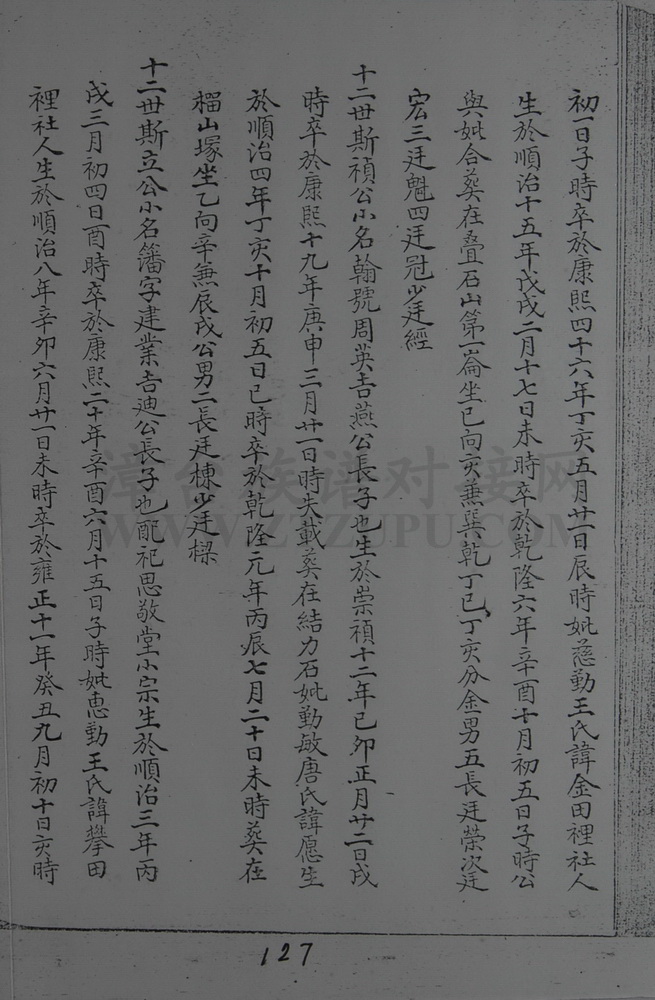 初一日子時卒於康熙四十六年丁亥五月廿一日辰時妣慈勤王氏諱金田裡社人
生於順治十五年戊戌二月十七日未時卒於乾隆六年辛酉十月初五日子時公
與妣合葬在疊石山第一崙坐巳向亥兼巽乾丁巳丁亥分金男五長廷榮次廷
宏三廷魁四廷冠少廷經
十二世斯禎公小名翰號周英吉燕公長子也生於崇禎十二年己卯正月廿二日戌
時卒於康熙十九年庚申三月廿一日時失載葬在結力石妣勤敏唐氏諱愿生
於順治四年丁亥十月初五日巳時卒於乾隆元年丙辰七月二十日未時葬在
榴山塚坐乙向辛無辰戌公男二長廷棟少廷樑
十二世斯立公小名籓字建業吉迪公長子也配祀思敬堂小宗生於順治三年丙
戌三月初四日酉時卒於康熙二十年辛酉六月十五日子時妣惠勤王氏諱攀田
裡社人生於順治八年辛卯六月廿一日未時卒於雍正十一年癸丑九月初十日亥時
127
漳台族谱对接网
WWW.ZTZUPU.COM